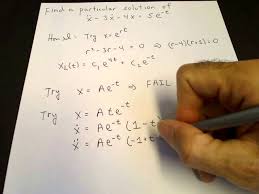 Find a particular solution of
ẍ - 3ẋ - 4x = 5e^-t
Try x = e^rt
r² - 3r - 4 = 0 ⇒ (r-4)(r+1) = 0
x_c(t) = c₁e^4t + c₂e^-t
Try x = Ae^-t ⇒ FAIL
Try x = Ate^-t
ẋ = Ae^-t (1-t)
ẍ = Ae^-t (-1+t